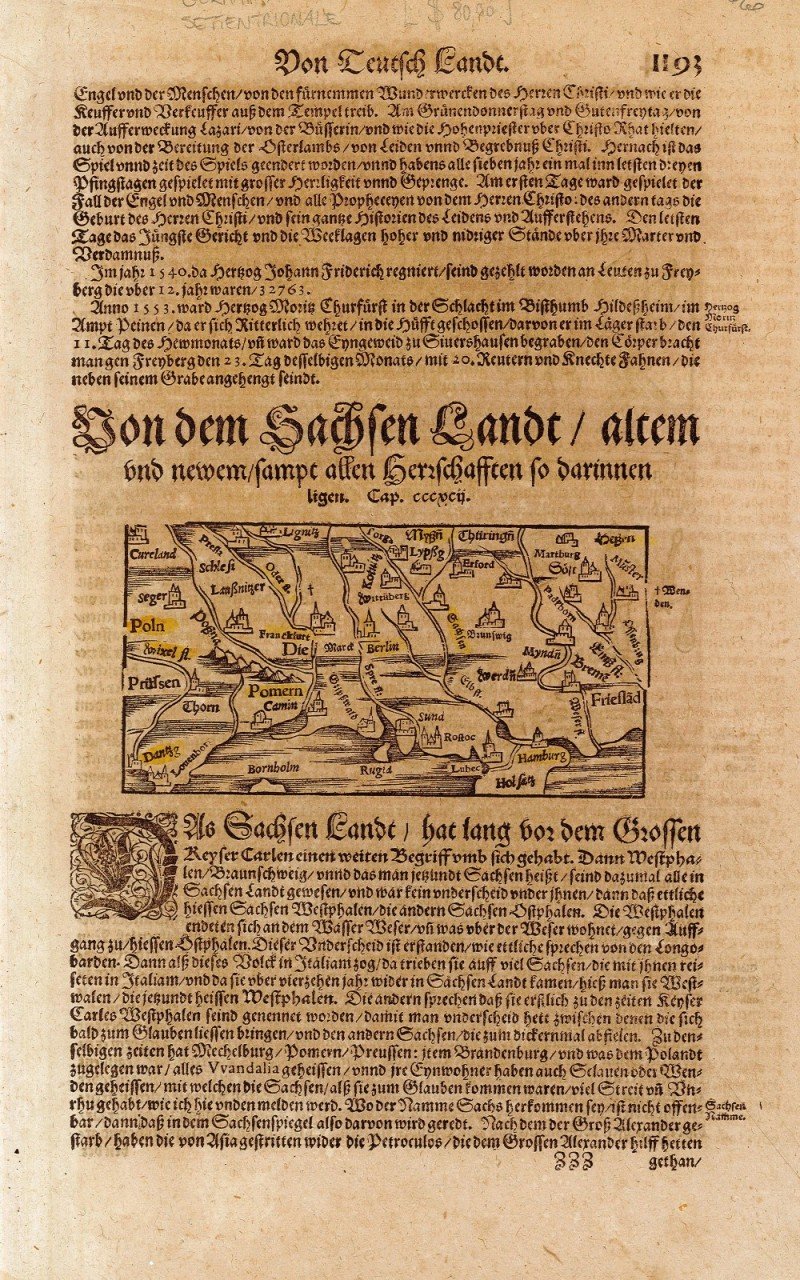 SETIENTRIONALE [ $ 80,70 ]
Von Teutsch Landt. 1193
Engel vnd der Menschen/ von den fürnemmen Wunderwercken des Herren Christi/ vnd wie er die
Keuffer vnd Verkeuffer auß dem Tempel treib. Am Grünendonnerstag vnd Gutenfreytag/ von
der Aufferweckung Lazari/ von der Büsserin/ vnd wie die Hohenpriester vber Christo Rhat hielten/
auch von der Bereitung der Osterlambs/ von Leiden vnnd Begrebnuß Christi. Hernach ist das
Spiel vnnd zeit des Spiels geendert worden/ vnnd habens alle sieben jahr ein mal inn letsten dreyen
Pfingstagen gespielet mit grosser Herrligkeit vnnd Geprenge. Am ersten Tage ward gespielet der
Fall der Engel vnd Menschen/ vnd alle Propheceyen von dem Herren Christo: des andern tags die
Geburt des Herren Christi/ vnd sein gantze Historien des Leidens vnd Aufferstehens. Den letsten
Tage das Jüngste Gericht vnd die Weeklagen hoher vnd nidriger Stände vber jhre Marter vnd
Verdamnuß.
Im jahr 1540. da Hertzog Johann Friderich regniert/ seind gezehlt worden an Leuten zu Frey-
berg die vber 12. jahr waren/ 32763.
Anno 1553. ward Hertzog Moritz Churfürst in der Schlacht im Bisthumb Hildeßheim/ im
Ampt Peinen/ da er sich Ritterlich wehret/ in die Hüfft geschossen/ darvon er im Läger starb/ den
11. Tag des Hewmonats/ vñ ward das Eyngeweid zu Siuershausen begraben/ den Cörper bracht
man gen Freyberg den 23. Tag desselbigen Monats/ mit 20. Reutern vnd Knechte Fahnen/ die
neben seinem Grabe angehengt seindt.
Hertzog
Moritz
Churfürst.
Von dem Sachsen Landt/ altem
vnd newem/ sampt allen Herrschafften so darinnen
ligen. Cap. cccxcij.
Lignitz Torg. Myßñ Thüringñ Hessen
Cureland Preß. Schlesi Oder fl. Kotwitz Lypßg Erford Martburg Söst Münster
Seger Laußnitzer Wittüberg Paderborn
† Wen-
den.
Poln Posna Franckfurt Sachsen Brunswig
Wixel fl. Die Marck Berlin Myndñ Emß fl.
Prüssen Pomern Spre fl. Elb fl. Werdñ Breme
Thorn Camin Gripßwald Sund Weser fl. Friesläd
Dantzg Lowenbor Rostoc
Bornholm Rugia Lubec Hamburg
Holsatz
DAs Sachsen Landt/ hat lang vor dem Grossen
Keyser Carlen einen weiten Begriff vmb sich gehabt. Dann Westpha-
len/ Braunschweig/ vnnd das man jetzundt Sachsen heißt/ seind dazumal alle in
Sachsen Landt gewesen/ vnd war kein vnderscheid vnder jhnen/ dann daß ettliche
hiessen Sachsen Westphalen/ die andern Sachsen Ostphalen. Die Westphalen
endeten sich an dem Wasser Weser/ vñ was vber der Weser wohnet/ gegen Auff-
gang zu/ hiessen Ostphalen. Dieser Vnderscheid ist erstanden/ wie ettliche sprechen von den Longo-
barden. Dann alß dieses Volck in Italiam zog/ da trieben sie auff viel Sachsen/ die mit jhnen rei-
seten in Italiam/ vnd da sie vber vierzehen jahr wider in Sachsen Landt kamen/ hieß man sie West-
walen/ die jetzundt heissen Westphalen. Die andern sprechen daß sie erstlich zu den zeiten Keyser
Carles Westphalen seind genennet worden/ damit man vnderscheid hett zwischen denen die sich
bald zum Glauben liessen bringen/ vnd den andern Sachsen/ die zum dickernmal abfielen. Zu den-
selbigen zeiten hat Mechelburg/ Pomern/ Preussen: jtem Brandenburg/ vnd was dem Polandt
zugelegen war/ alles Vvandalia geheissen/ vnnd jre Eynwohner haben auch Sclauen oder Wen-
den geheissen/ mit welchen die Sachsen/ alß sie zum Glauben kommen waren/ viel Streit vñ Vn-
rhu gehabt/ wie ich hie vnden melden werd. Wo der Namme Sachs herkommen sey/ ist nicht offen-
bar/ dann daß in dem Sachsenspiegel also darvon wird geredt. Nach dem der Groß Alexander ge-
starb/ haben die von Asia gestritten wider die Petroculos/ die dem Grossen Alexander hilff hetten
Sachsen
Namme.
ZZZ gethan/